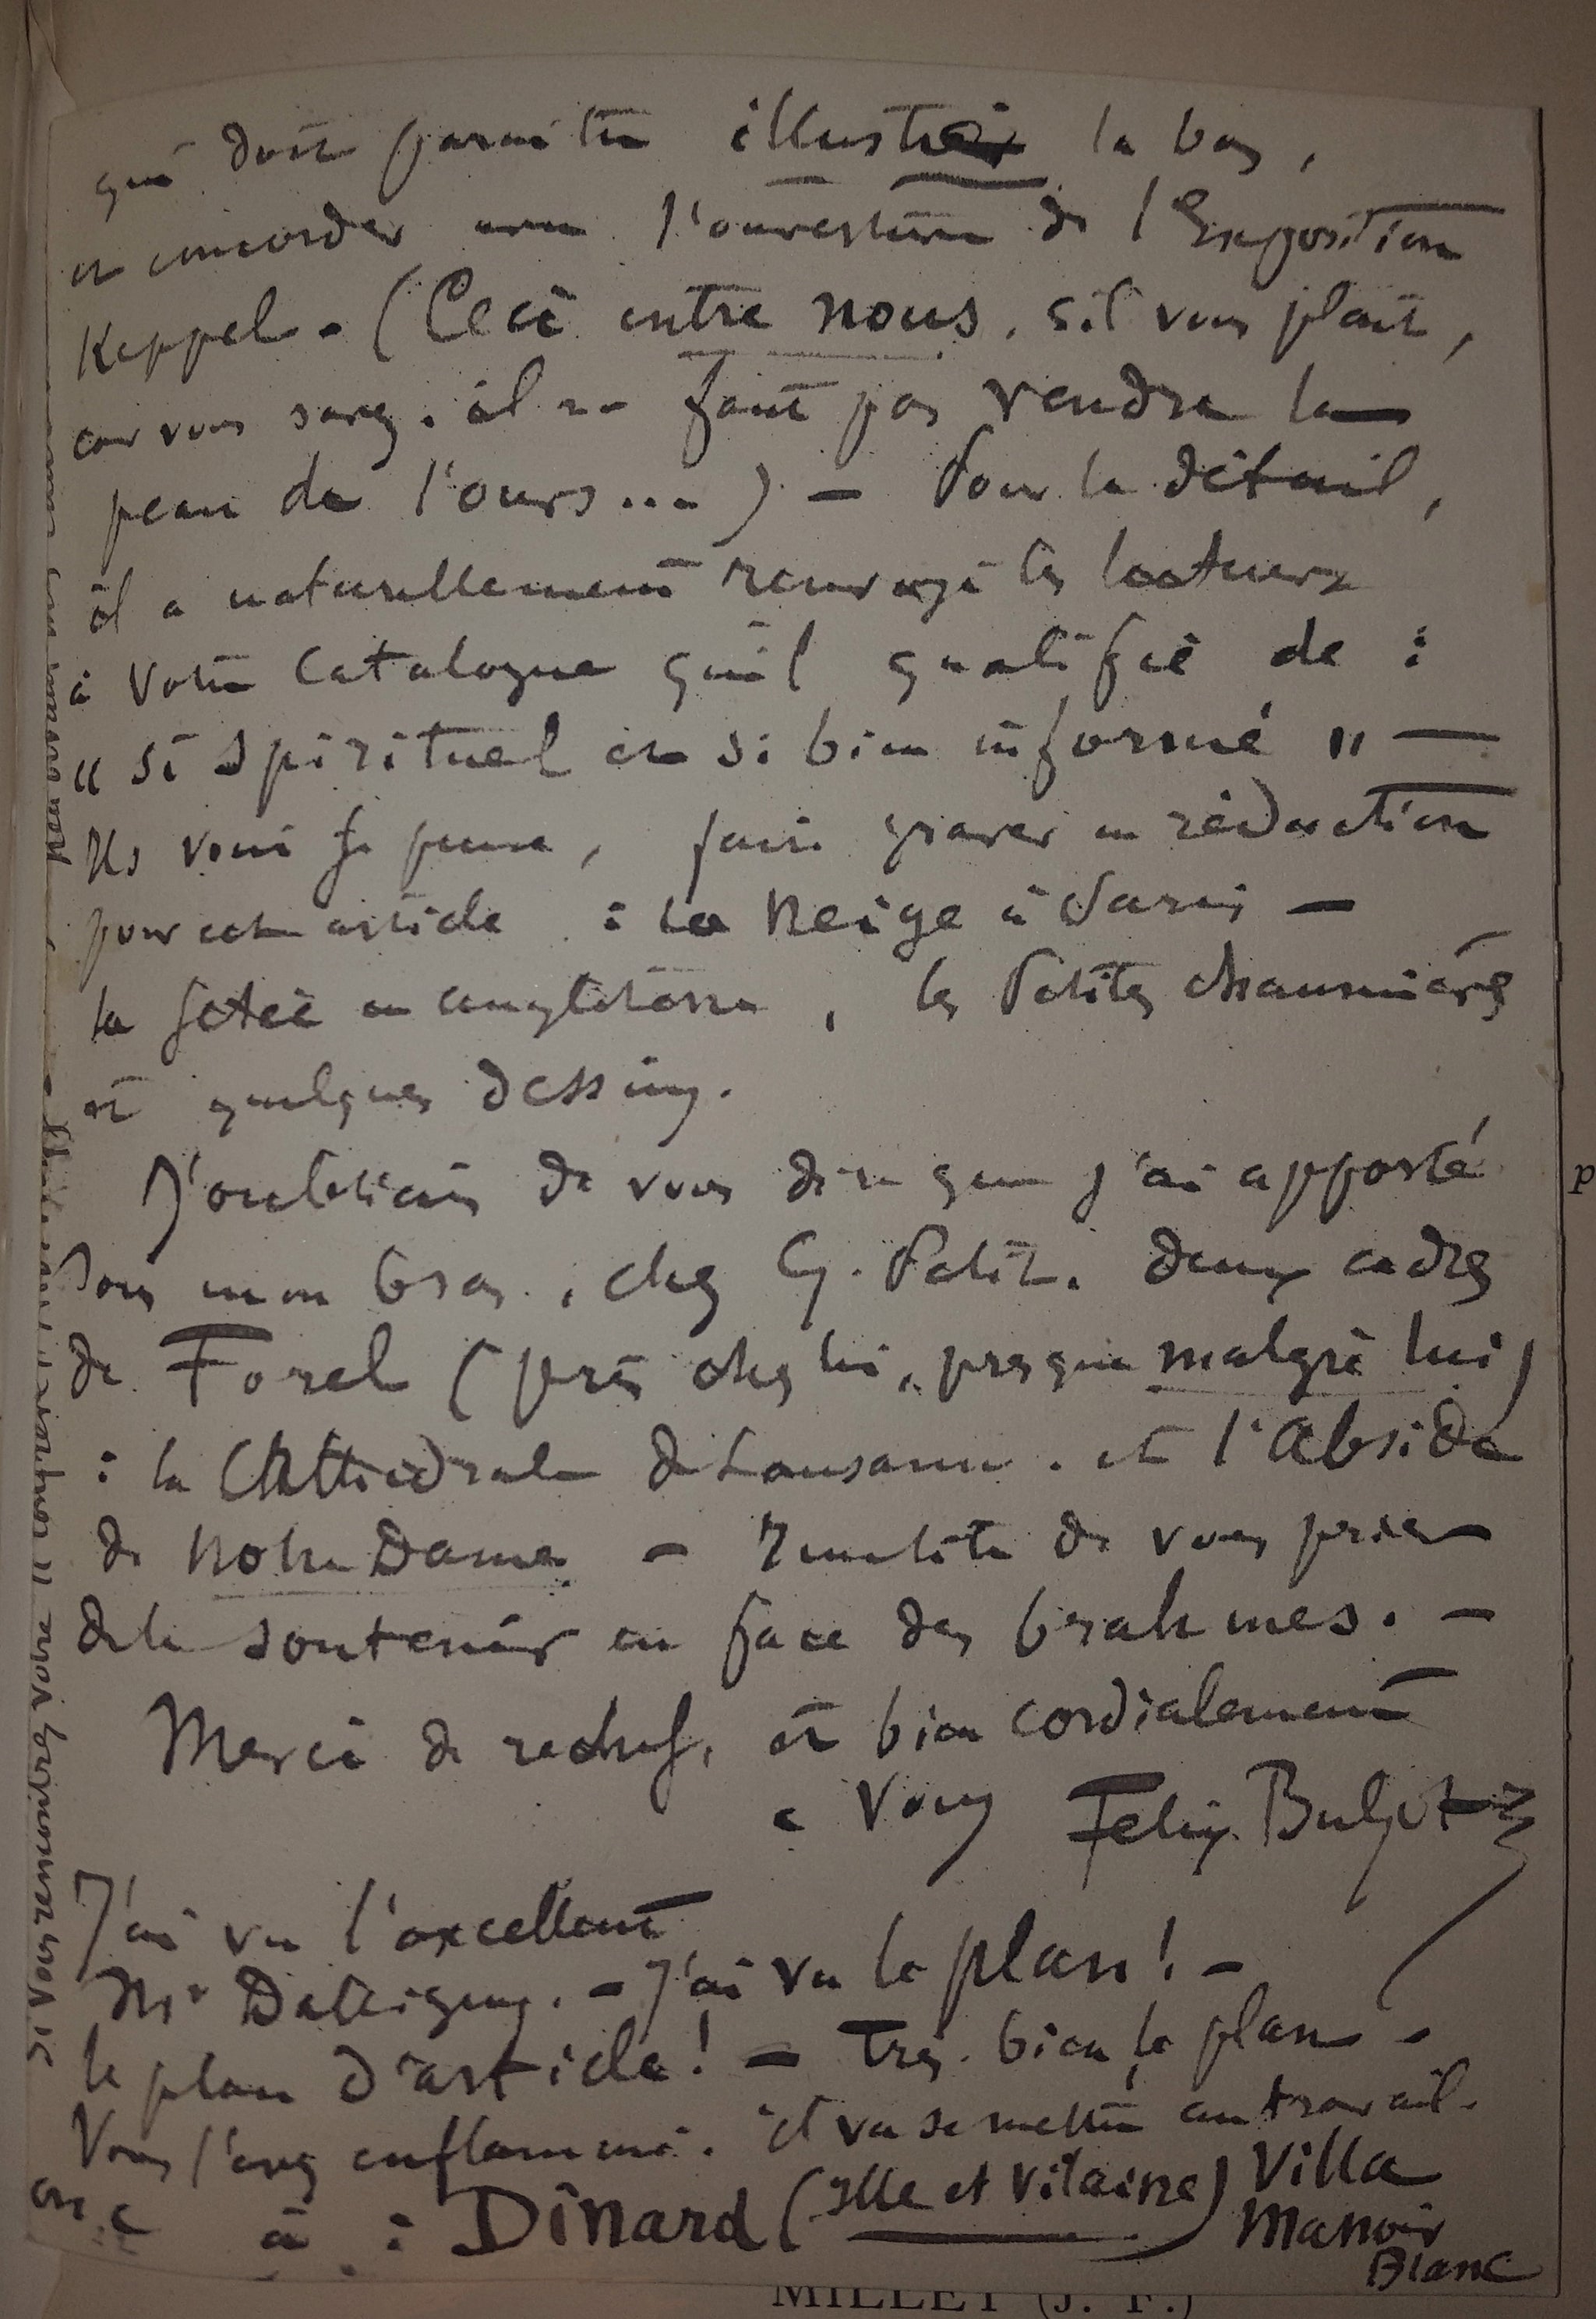 qui doit paraitre illustré la bas,
et concorder avec l'ouverture de l'Exposition
Keppel. - (Ceci entre nous, s'il vous plait,
car vous savez, il ne faut pas vendre la
peau de l'ours...) - Pour le détail,
il a naturellement renvoyé les lecteurs
à votre Catalogue qu'il qualifie de :
" si spirituel et si bien informé " —
Ils vont je pense, faire graver en réduction
pour cet article : la Neige à Paris —
la Jetée en angleterre, les Petites chaumières
et quelques dessins.
J'oubliais de vous dire que j'ai apporté
sous mon bras, chez G. Petit, deux cadres
de Forel (pris chez lui, presque malgré lui)
: la Cathédrale de Lausanne, et l'Abside
de Notre Dame - Inutile de vous prier
de le soutenir en face des brahmes. -
Merci de rechef, et bien cordialement
à Vous Felix Buhot
J'ai vu l'excellent
Mr Dalligny. - J'ai vu le plan! -
le plan d'article! - Très bien le plan -
Vous l'avez enflammé. il va se mettre au travail.
à : Dinard (Ille et Vilaine) Villa
Manoir
Blanc
Si vous
MILLET (J. F.)
p